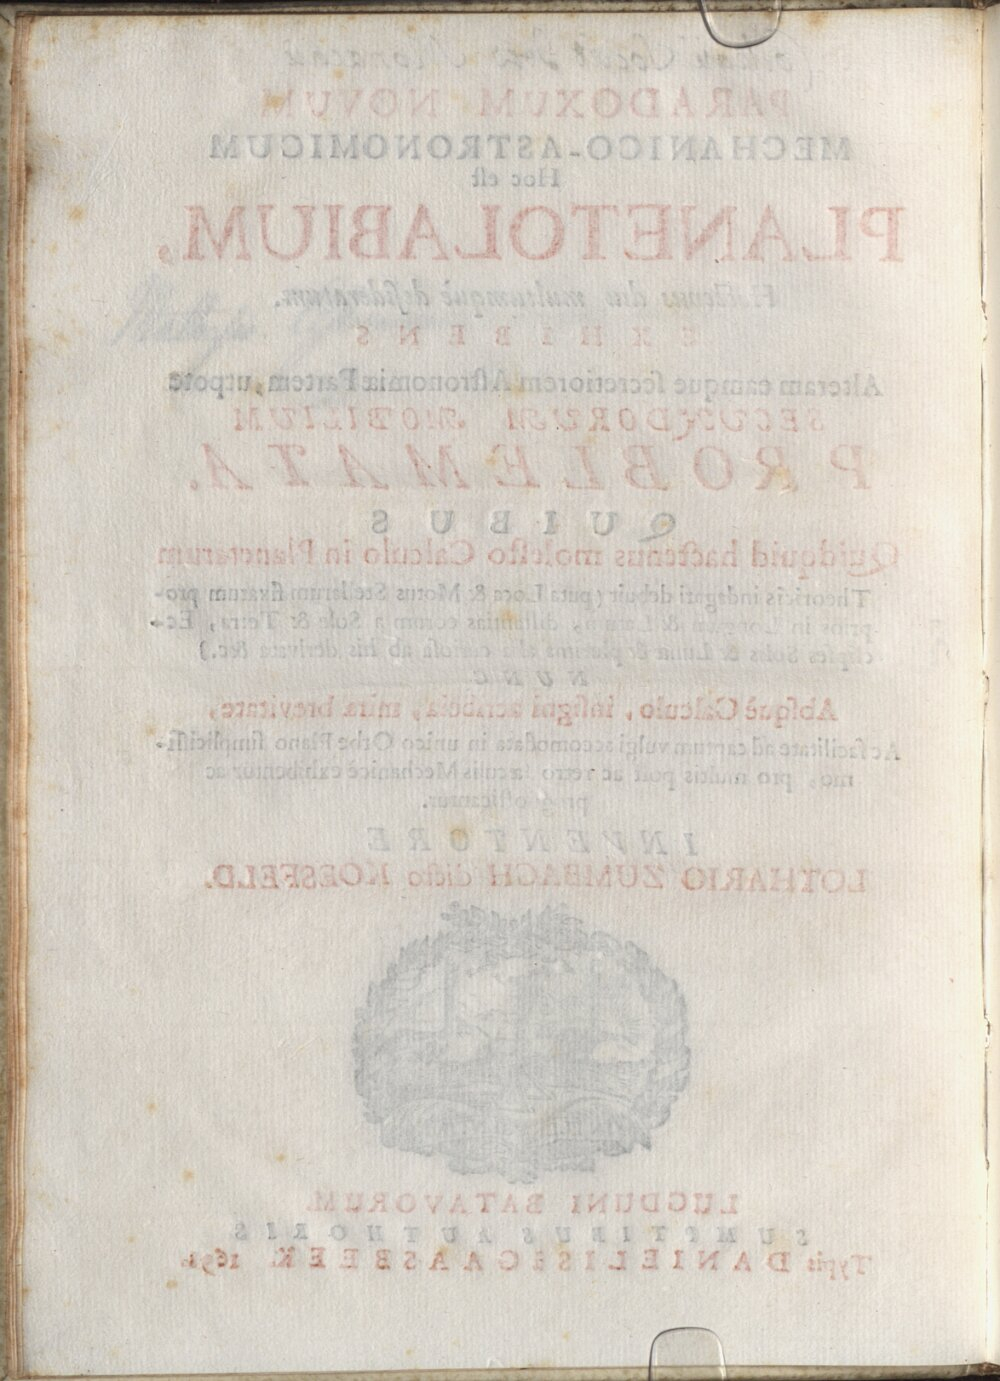 PARADOXUM NOVUM
MECHANICO-ASTRONOMICUM
Hoc eſt
PLANETOLABIUM,
Hactenus diu multumquè deſideratum.
EXHIBENS
Alteram eamque ſecretiorem Aſtronomiæ Partem, utpote
SECUNDORUM MOBILIUM
PROBLEMATA.
QUIBUS
Quidquid hactenus moleſto Calculo in Planetarum
Theoricis indagari debuit (puta Loca & Motus Stellarum fixarum pro-
prios in & diſtantias eorum a Sole & Terra, Ec-
clipſes Solis & Lunæ & alia curioſa ab his derivata &c.)
NUNC
Abſquè Calculo, inſigni acribeia, mira brevitate,
Ac facilitate ad captum vulgi accomodata in unico Orbe Plano ſimpliciſſi-
mo, pro multis poſt ac retro ſæculis Mechanicè exhibentur ac
prognoſticantur.
INVENTORE
LOTHARIO ZUMBACH dicto KOESFELD.
LUGDUNI BATAVORUM.
SUMPTIBUS AUTHORIS
Typis DANIELIS à GAASBEEK. 1691.